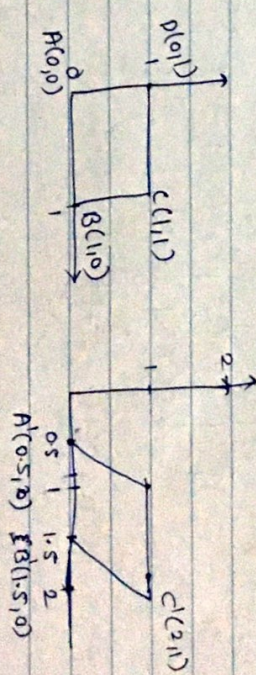 D(0,1)
1
C(1,1)
0
A(0,0)
1
B(1,0)
2
1
C'(2,1)
0.5
1
1.5
2
A'(0.5,0)
B'(1.5,0)